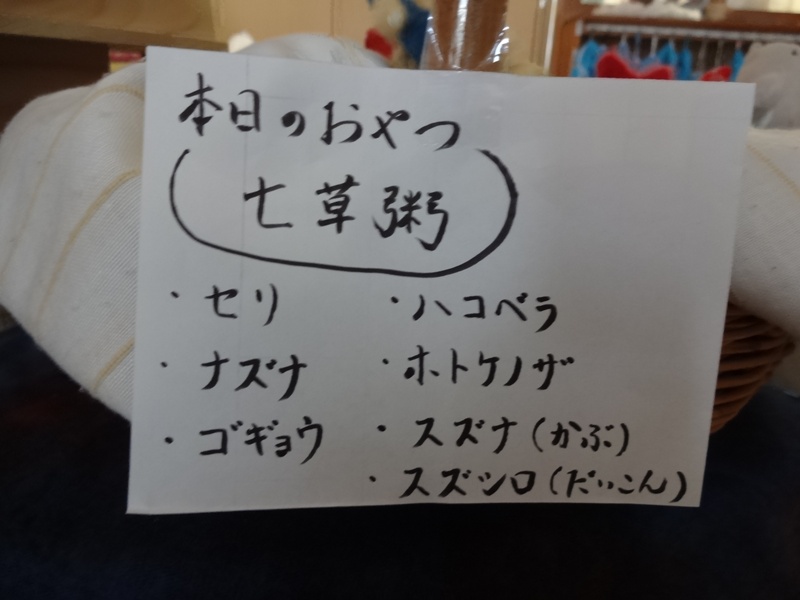 本日のおやつ
七草粥
・セリ
・ナズナ
・ゴギョウ
・ハコベラ
・ホトケノザ
・スズナ(かぶ)
・スズシロ(だいこん)